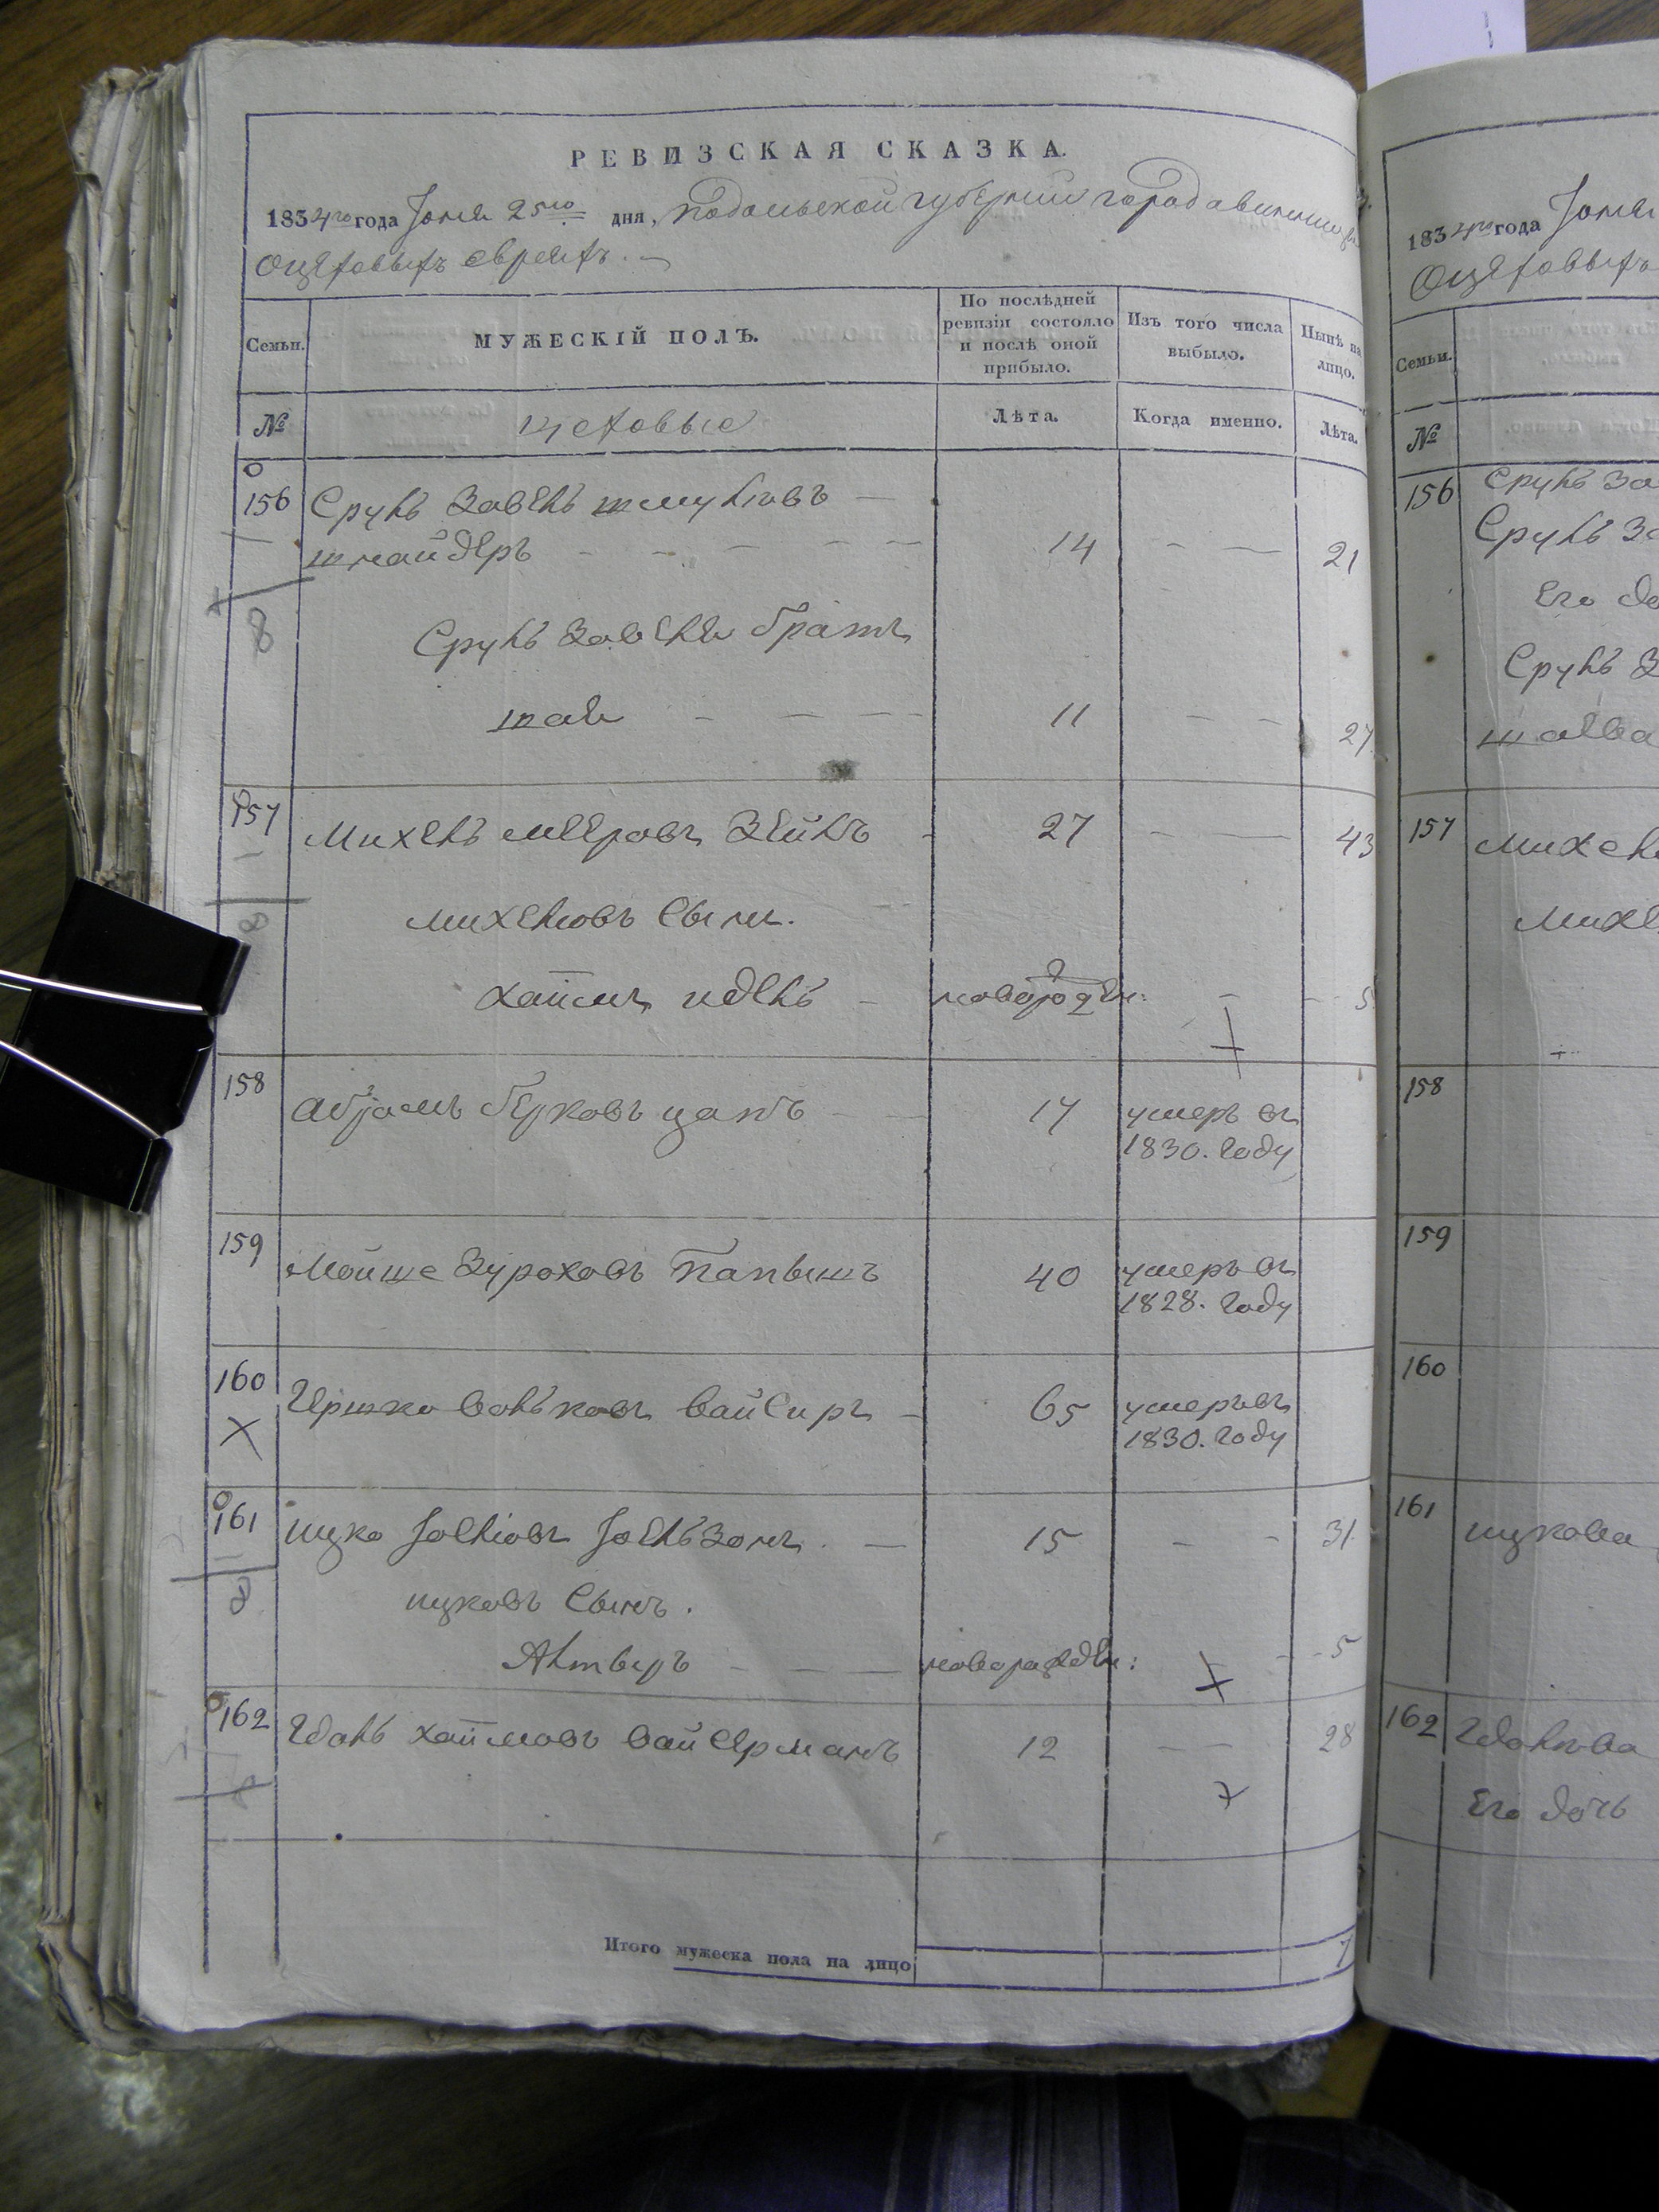 РЕВИЗСКАЯ СКАЗКА.
1834го года Іюня 25го дня, подольской губерніи города винницы
Оцеховыхъ евреяхъ.
Семьи.
МУЖЕСКІЙ ПОЛЪ.
По послѣдней ревизіи состояло и послѣ оной прибыло.
Изъ того числа выбыло.
Нынѣ на лицо.
№
цеховые
Лѣта.
Когда именно.
Лѣта.
156 Сруль Завель шмулiовъ
шнайдеръ 14 21
8
Сруль Завеля братъ
11 27
157 Михель мееровъ Зейлъ 27 43
8
михелювъ сынъ.
хаимъ идель новорожден: 5
158 абрамъ берковъ цапъ 17 умеръ въ
1830. году
159 Мойше Зуроховъ 40 умеръ въ
1828. году
160 Гершко волъковъ вайсиръ 65 умеръ въ
1830. году
161 ицко Іоеліовъ Іоельзонъ 15 31
8
ицковъ сынъ.
Алтыръ новорожден: 5
162 Гдаль хаимовъ вайсерманъ 12 28
Итого мужеска пола на лицо 7
1834го года Іюня
Оцеховыхъ
Семьи.
№
156 Сруль За
Сруль За
Его до
Сруль З
157 михел
михе
158
159
160
161 ицкова
162 Гдалюва
Его дочь